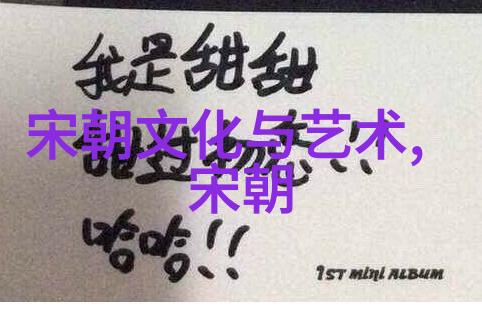 我是甜甜
宋朝文化与艺术,
宋朝
哈哈!!
1ST MINI ALBUM